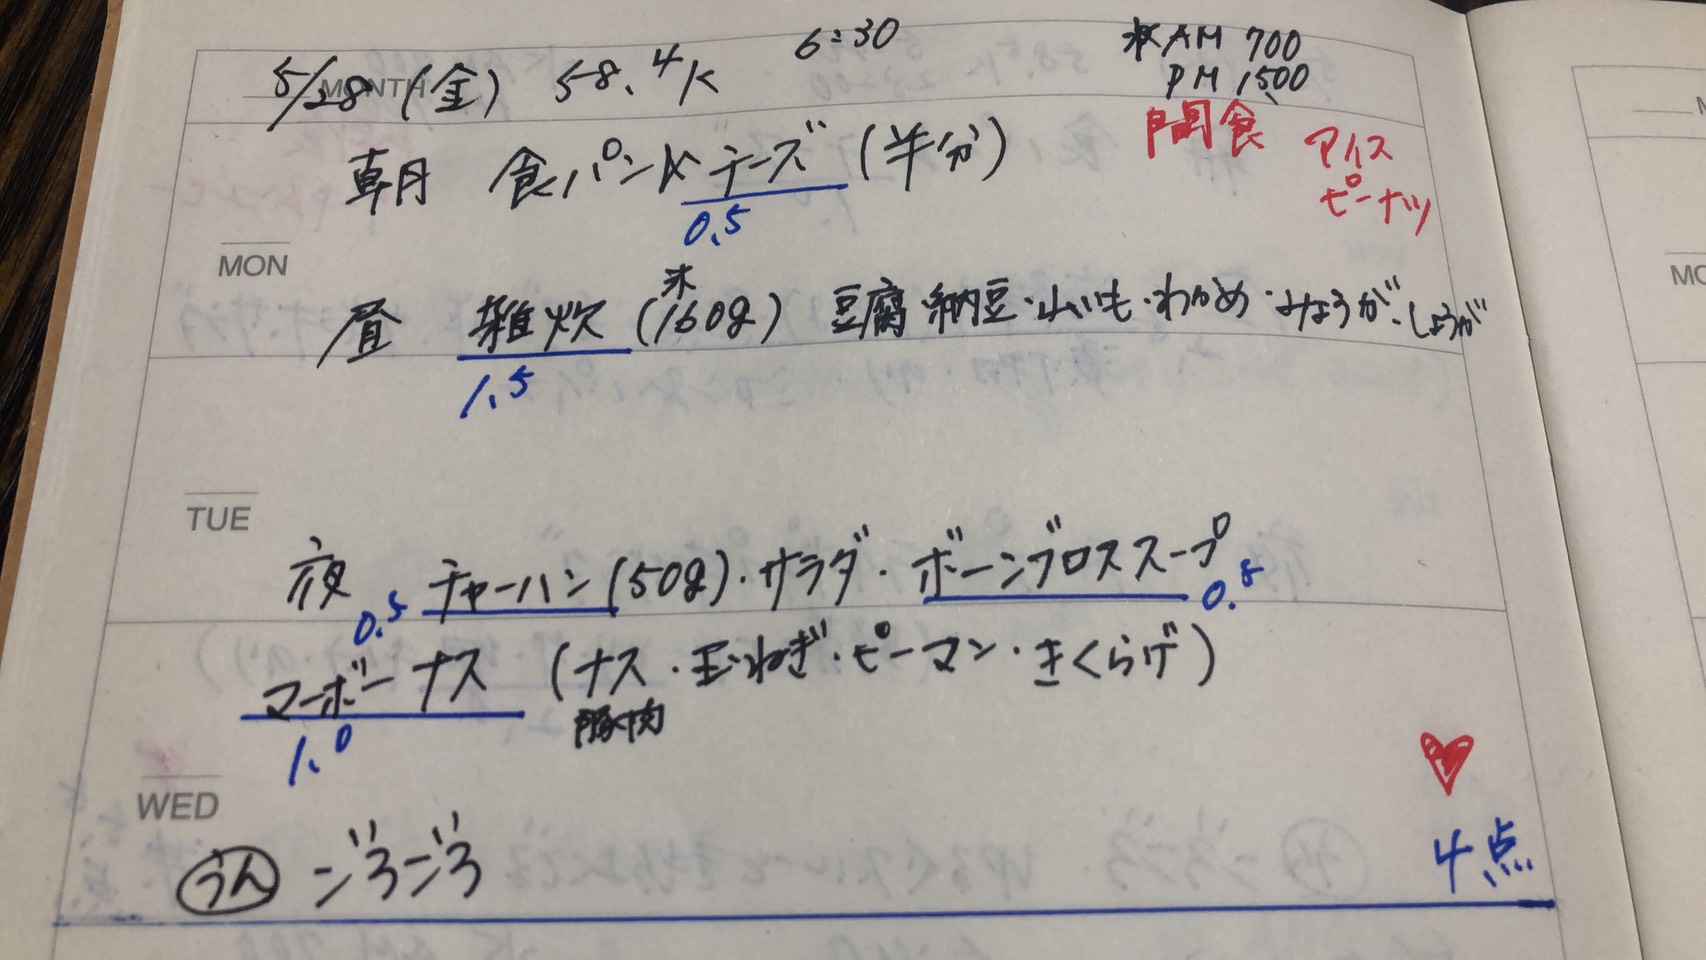 5/28 (金) 58.4K 6:30 水 AM 700
MONTH
PM 1500
間食 アイス
ピーナツ
朝 食パンKチーズ (半分)
0.5
MON
昼 雑炊 (米160g) 豆腐・納豆・山いも・わかめ・みょうが・しょうが
1.5
TUE
夜 チャーハン (50g)・サラダ・ボーンブロススープ
0.5 0.5
マーボーナス (ナス・玉ねぎ・ピーマン・きくらげ)
豚肉
1.0
WED
うん ごろごろ
4点